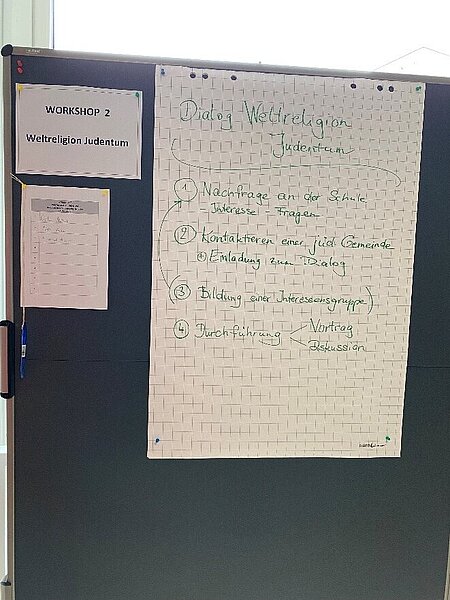 WORKSHOP 2
Weltreligion Judentum
Dialog Weltreligion
Judentum
1 Nachfrage an der Schule
Interesse - Fragen
2 Kontaktieren einer jüd. Gemeinde
+ Einladung zum Dialog
3 Bildung einer Interessensgruppe)
4 Durchführung
Vortrag
Diskussion